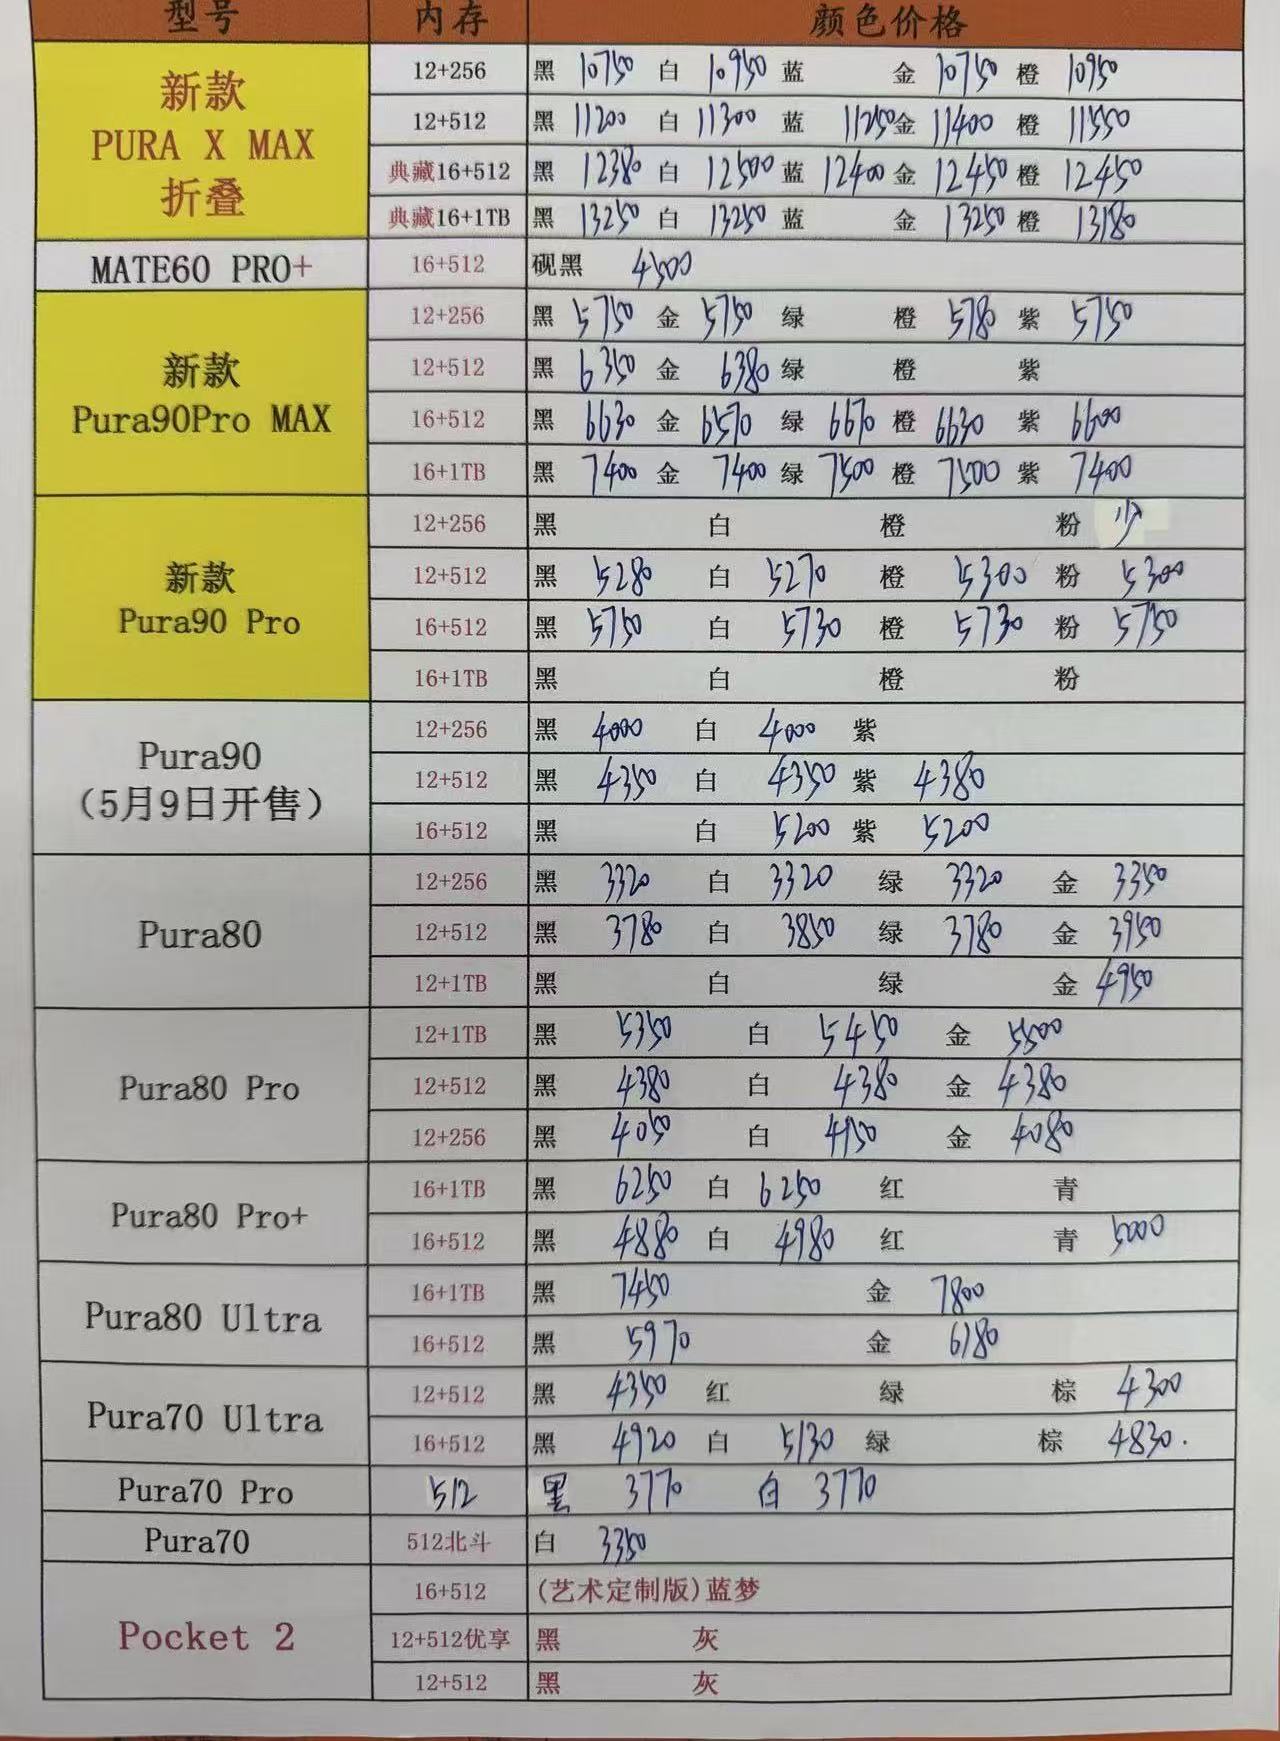 型号 内存 颜色价格
新款
PURA X MAX
折叠
12+256 黑 10750 白 10950 蓝 金 10750 橙 10950
12+512 黑 11200 白 11300 蓝 11250 金 11400 橙 11550
典藏16+512 黑 12380 白 12500 蓝 12400 金 12450 橙 12450
典藏16+1TB 黑 13250 白 13250 蓝 金 13250 橙 13180
MATE60 PRO+ 16+512 砚黑 4500
新款
Pura90Pro MAX
12+256 黑 5750 金 5750 绿 橙 5780 紫 5750
12+512 黑 6350 金 6380 绿 橙 紫
16+512 黑 6630 金 6570 绿 6670 橙 6630 紫 6600
16+1TB 黑 7400 金 7400 绿 7500 橙 7500 紫 7400
新款
Pura90 Pro
12+256 黑 白 橙 粉 少
12+512 黑 5280 白 5270 橙 5300 粉 5300
16+512 黑 5750 白 5730 橙 5730 粉 5750
16+1TB 黑 白 橙 粉
Pura90
（5月9日开售）
12+256 黑 4000 白 4000 紫
12+512 黑 4350 白 4350 紫 4380
16+512 黑 白 5200 紫 5200
Pura80
12+256 黑 3320 白 3320 绿 3320 金 3350
12+512 黑 3780 白 3850 绿 3780 金 3950
12+1TB 黑 白 绿 金 4950
Pura80 Pro
12+1TB 黑 5350 白 5450 金 5500
12+512 黑 4380 白 4380 金 4380
12+256 黑 4050 白 4150 金 4080
Pura80 Pro+
16+1TB 黑 6250 白 6250 红 青
16+512 黑 4880 白 4980 红 青 5000
Pura80 Ultra
16+1TB 黑 7450 金 7800
16+512 黑 5970 金 6180
Pura70 Ultra
12+512 黑 4350 红 绿 棕 4300
16+512 黑 4920 白 5130 绿 棕 4830.
Pura70 Pro 512 黑 3770 白 3770
Pura70 512北斗 白 3350
Pocket 2
16+512 (艺术定制版)蓝梦
12+512优享 黑 灰
12+512 黑 灰